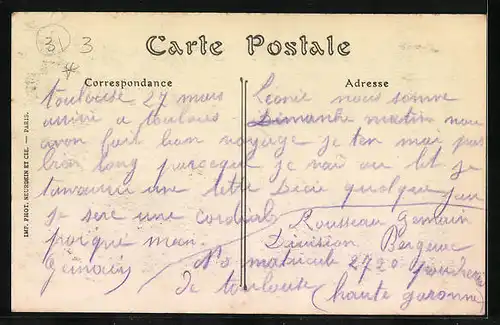 31 3
Carte Postale
Correspondance
Adresse
IMP. PHOT. NEURDEIN ET CIE. — PARIS.
toulouse 27 mars Léonie nous somme
arrivé a toulouse Dimanche matin nou
avon fait bon voyage je ten mai pas
bien long parceque je vai au lit je
tanvairai une letre Décie quelque jour
je sere une cordiale
poigne main
Germain
Rousseau Germain
Division Bergeuve
No matricule 2720 poudrerie
de toulouse (haute garonne)